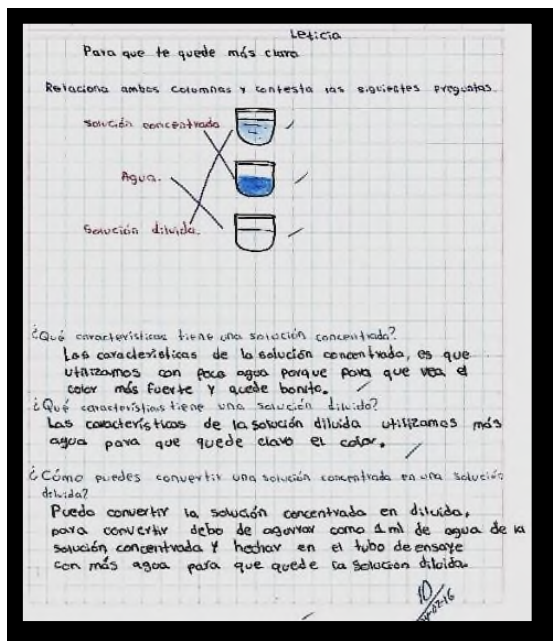 Leticia
Para que te quede más claro
Relaciona ambas columnas y contesta las siguientes preguntas.
Solución concentrada
Agua.
Solución diluida.
¿Qué características tiene una solución concentrada?
Las características de la solución concentrada, es que
utilizamos con poca agua porque para que vea el
color más fuerte y quede bonito.
¿Qué características tiene una solución diluida?
Las características de la solución diluida utilizamos más
agua para que quede claro el color.
¿Cómo puedes convertir una solución concentrada en una solución
diluida?
Puedo convertir la solución concentrada en diluida,
para convertir debo de agarrar como 1 ml de agua de la
solución concentrada y hechar en el tubo de ensaye
con más agua para que quede la solución diluida.
10